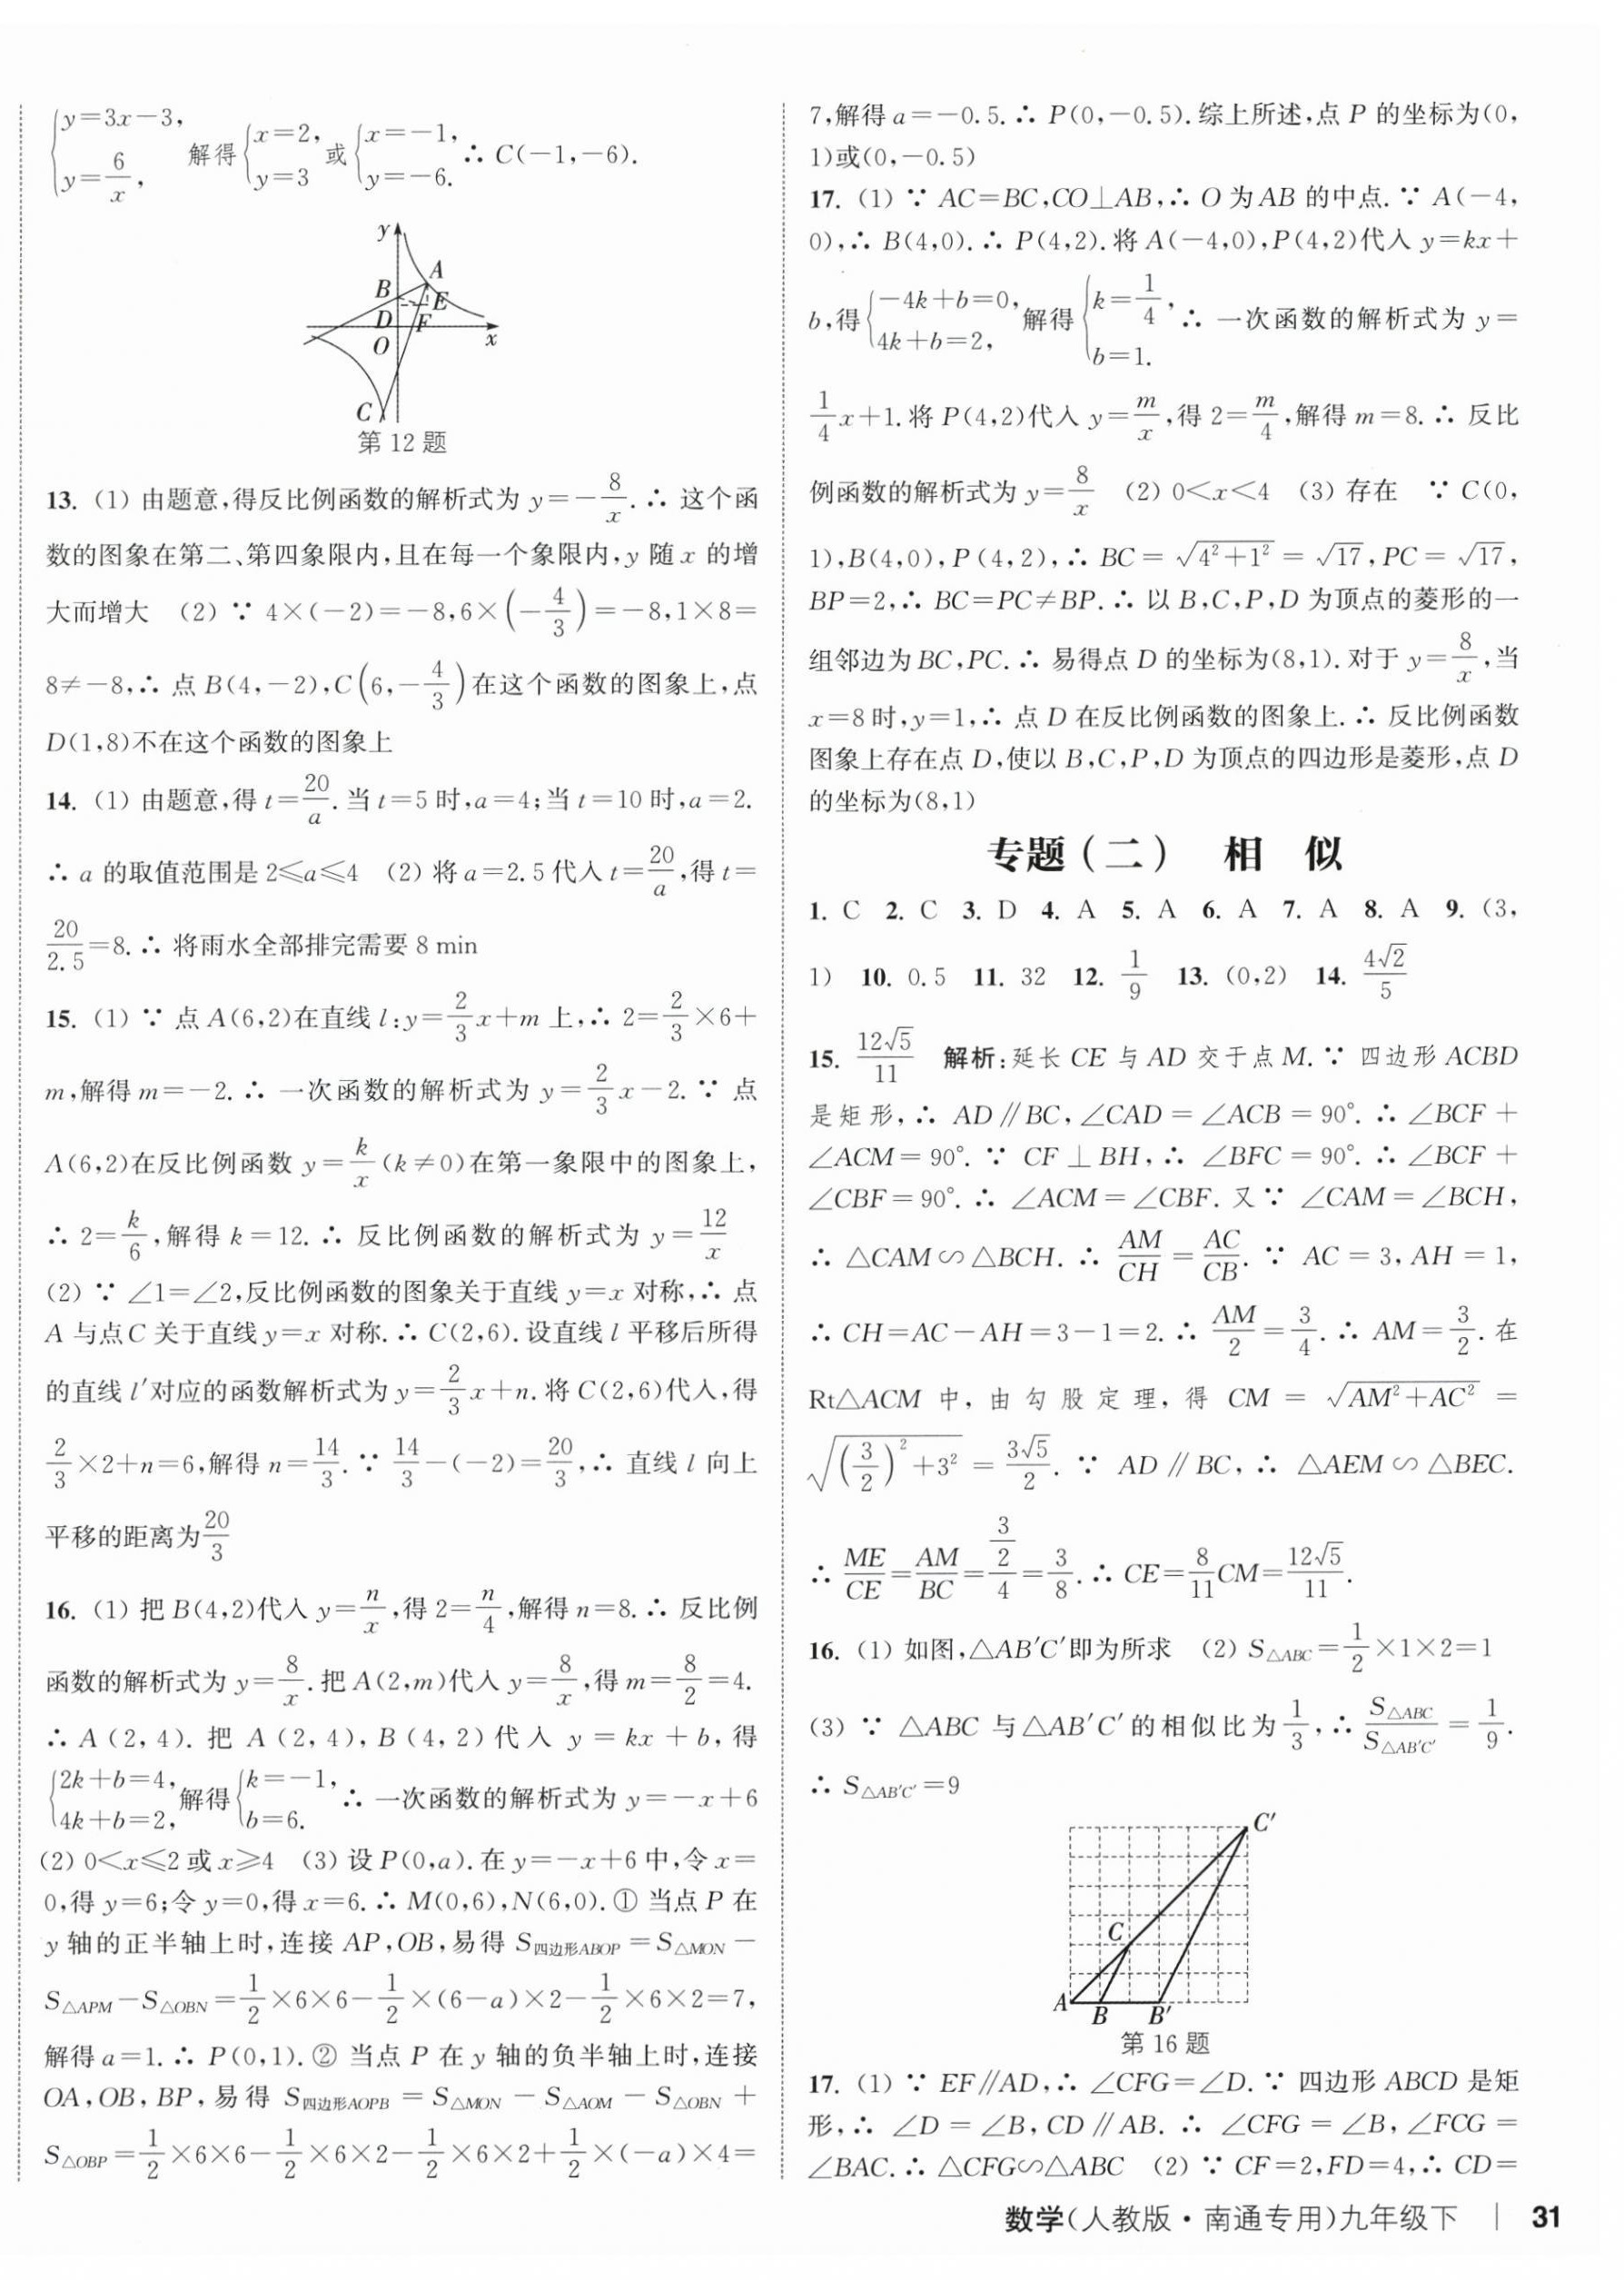 {y=3x-3, y=6/x, 解得{x=2, y=3 或{x=-1, y=-6. ∴ C(-1,-6).
y
A
B
E
D
F
O
x
C
第 12 题
13. (1) 由题意,得反比例函数的解析式为 y=-8/x. ∴ 这个函
数的图象在第二、第四象限内,且在每一个象限内,y 随 x 的增
大而增大 (2) ∵ 4×(-2)=-8,6×(-4/3)=-8,1×8=
8≠-8,∴ 点 B(4,-2),C(6,-4/3)在这个函数的图象上,点
D(1,8)不在这个函数的图象上
14. (1) 由题意,得 t=20/a. 当 t=5 时,a=4;当 t=10 时,a=2.
∴ a 的取值范围是 2≤a≤4 (2) 将 a=2.5 代入 t=20/a,得 t=
20/2.5=8. ∴ 将雨水全部排完需要 8 min
15. (1) ∵ 点 A(6,2)在直线 l:y=2/3x+m 上,∴ 2=2/3×6+
m,解得 m=-2. ∴ 一次函数的解析式为 y=2/3x-2. ∵ 点
A(6,2)在反比例函数 y=k/x(k≠0)在第一象限中的图象上,
∴ 2=k/6,解得 k=12. ∴ 反比例函数的解析式为 y=12/x
(2) ∵ ∠1=∠2,反比例函数的图象关于直线 y=x 对称,∴ 点
A 与点 C 关于直线 y=x 对称. ∴ C(2,6). 设直线 l 平移后所得
的直线 l′对应的函数解析式为 y=2/3x+n. 将 C(2,6)代入,得
2/3×2+n=6,解得 n=14/3. ∵ 14/3-(-2)=20/3,∴ 直线 l 向上
平移的距离为20/3
16. (1) 把 B(4,2)代入 y=n/x,得 2=n/4,解得 n=8. ∴ 反比例
函数的解析式为 y=8/x. 把 A(2,m)代入 y=8/x,得 m=8/2=4.
∴ A(2,4). 把 A(2,4),B(4,2)代入 y=kx+b,得
{2k+b=4, 4k+b=2, 解得{k=-1, b=6. ∴ 一次函数的解析式为 y=-x+6
(2) 0<x≤2 或 x≥4 (3) 设 P(0,a). 在 y=-x+6 中,令 x=
0,得 y=6;令 y=0,得 x=6. ∴ M(0,6),N(6,0). ① 当点 P 在
y 轴的正半轴上时,连接 AP,OB,易得 S四边形ABOP=S△MON-
S△APM-S△OBN=1/2×6×6-1/2×(6-a)×2-1/2×6×2=7,
解得 a=1. ∴ P(0,1). ② 当点 P 在 y 轴的负半轴上时,连接
OA,OB,BP,易得 S四边形AOPB=S△MON-S△AOM-S△OBN+
S△OBP=1/2×6×6-1/2×6×2-1/2×6×2+1/2×(-a)×4=
7,解得 a=-0.5. ∴ P(0,-0.5). 综上所述,点 P 的坐标为(0,
1)或(0,-0.5)
17. (1) ∵ AC=BC,CO⊥AB,∴ O 为 AB 的中点. ∵ A(-4,
0),∴ B(4,0). ∴ P(4,2). 将 A(-4,0),P(4,2)代入 y=kx+
b,得{-4k+b=0, 4k+b=2, 解得{k=1/4, b=1. ∴ 一次函数的解析式为 y=
1/4x+1. 将 P(4,2)代入 y=m/x,得 2=m/4,解得 m=8. ∴ 反比
例函数的解析式为 y=8/x (2) 0<x<4 (3) 存在 ∵ C(0,
1),B(4,0),P(4,2),∴ BC=√(4²+1²)=√17,PC=√17,
BP=2,∴ BC=PC≠BP. ∴ 以 B,C,P,D 为顶点的菱形的一
组邻边为 BC,PC. ∴ 易得点 D 的坐标为(8,1). 对于 y=8/x,当
x=8 时,y=1,∴ 点 D 在反比例函数的图象上. ∴ 反比例函数
图象上存在点 D,使以 B,C,P,D 为顶点的四边形是菱形,点 D
的坐标为(8,1)
专题(二) 相 似
1. C 2. C 3. D 4. A 5. A 6. A 7. A 8. A 9. (3,
1) 10. 0.5 11. 32 12. 1/9 13. (0,2) 14. 4√2/5
15. 12√5/11 解析:延长 CE 与 AD 交于点 M. ∵ 四边形 ACBD
是矩形,∴ AD∥BC,∠CAD=∠ACB=90°. ∴ ∠BCF+
∠ACM=90°. ∵ CF⊥BH,∴ ∠BFC=90°. ∴ ∠BCF+
∠CBF=90°. ∴ ∠ACM=∠CBF. 又∵ ∠CAM=∠BCH,
∴ △CAM∽△BCH. ∴ AM/CH=AC/CB. ∵ AC=3,AH=1,
∴ CH=AC-AH=3-1=2. ∴ AM/2=3/4. ∴ AM=3/2. 在
Rt△ACM 中,由勾股定理,得 CM=√(AM²+AC²)=
√((3/2)²+3²)=3√5/2. ∵ AD∥BC,∴ △AEM∽△BEC.
∴ ME/CE=AM/BC=(3/2)/4=3/8. ∴ CE=8/11CM=12√5/11.
16. (1) 如图,△AB′C′即为所求 (2) S△ABC=1/2×1×2=1
(3) ∵ △ABC 与△AB′C′的相似比为1/3,∴ S△ABC/S△AB′C′=1/9.
∴ S△AB′C′=9
C′
C
A
B
B′
第 16 题
17. (1) ∵ EF∥AD,∴ ∠CFG=∠D. ∵ 四边形 ABCD 是矩
形,∴ ∠D=∠B,CD∥AB. ∴ ∠CFG=∠B,∠FCG=
∠BAC. ∴ △CFG∽△ABC (2) ∵ CF=2,FD=4,∴ CD=
数学(人教版·南通专用)九年级下 | 31